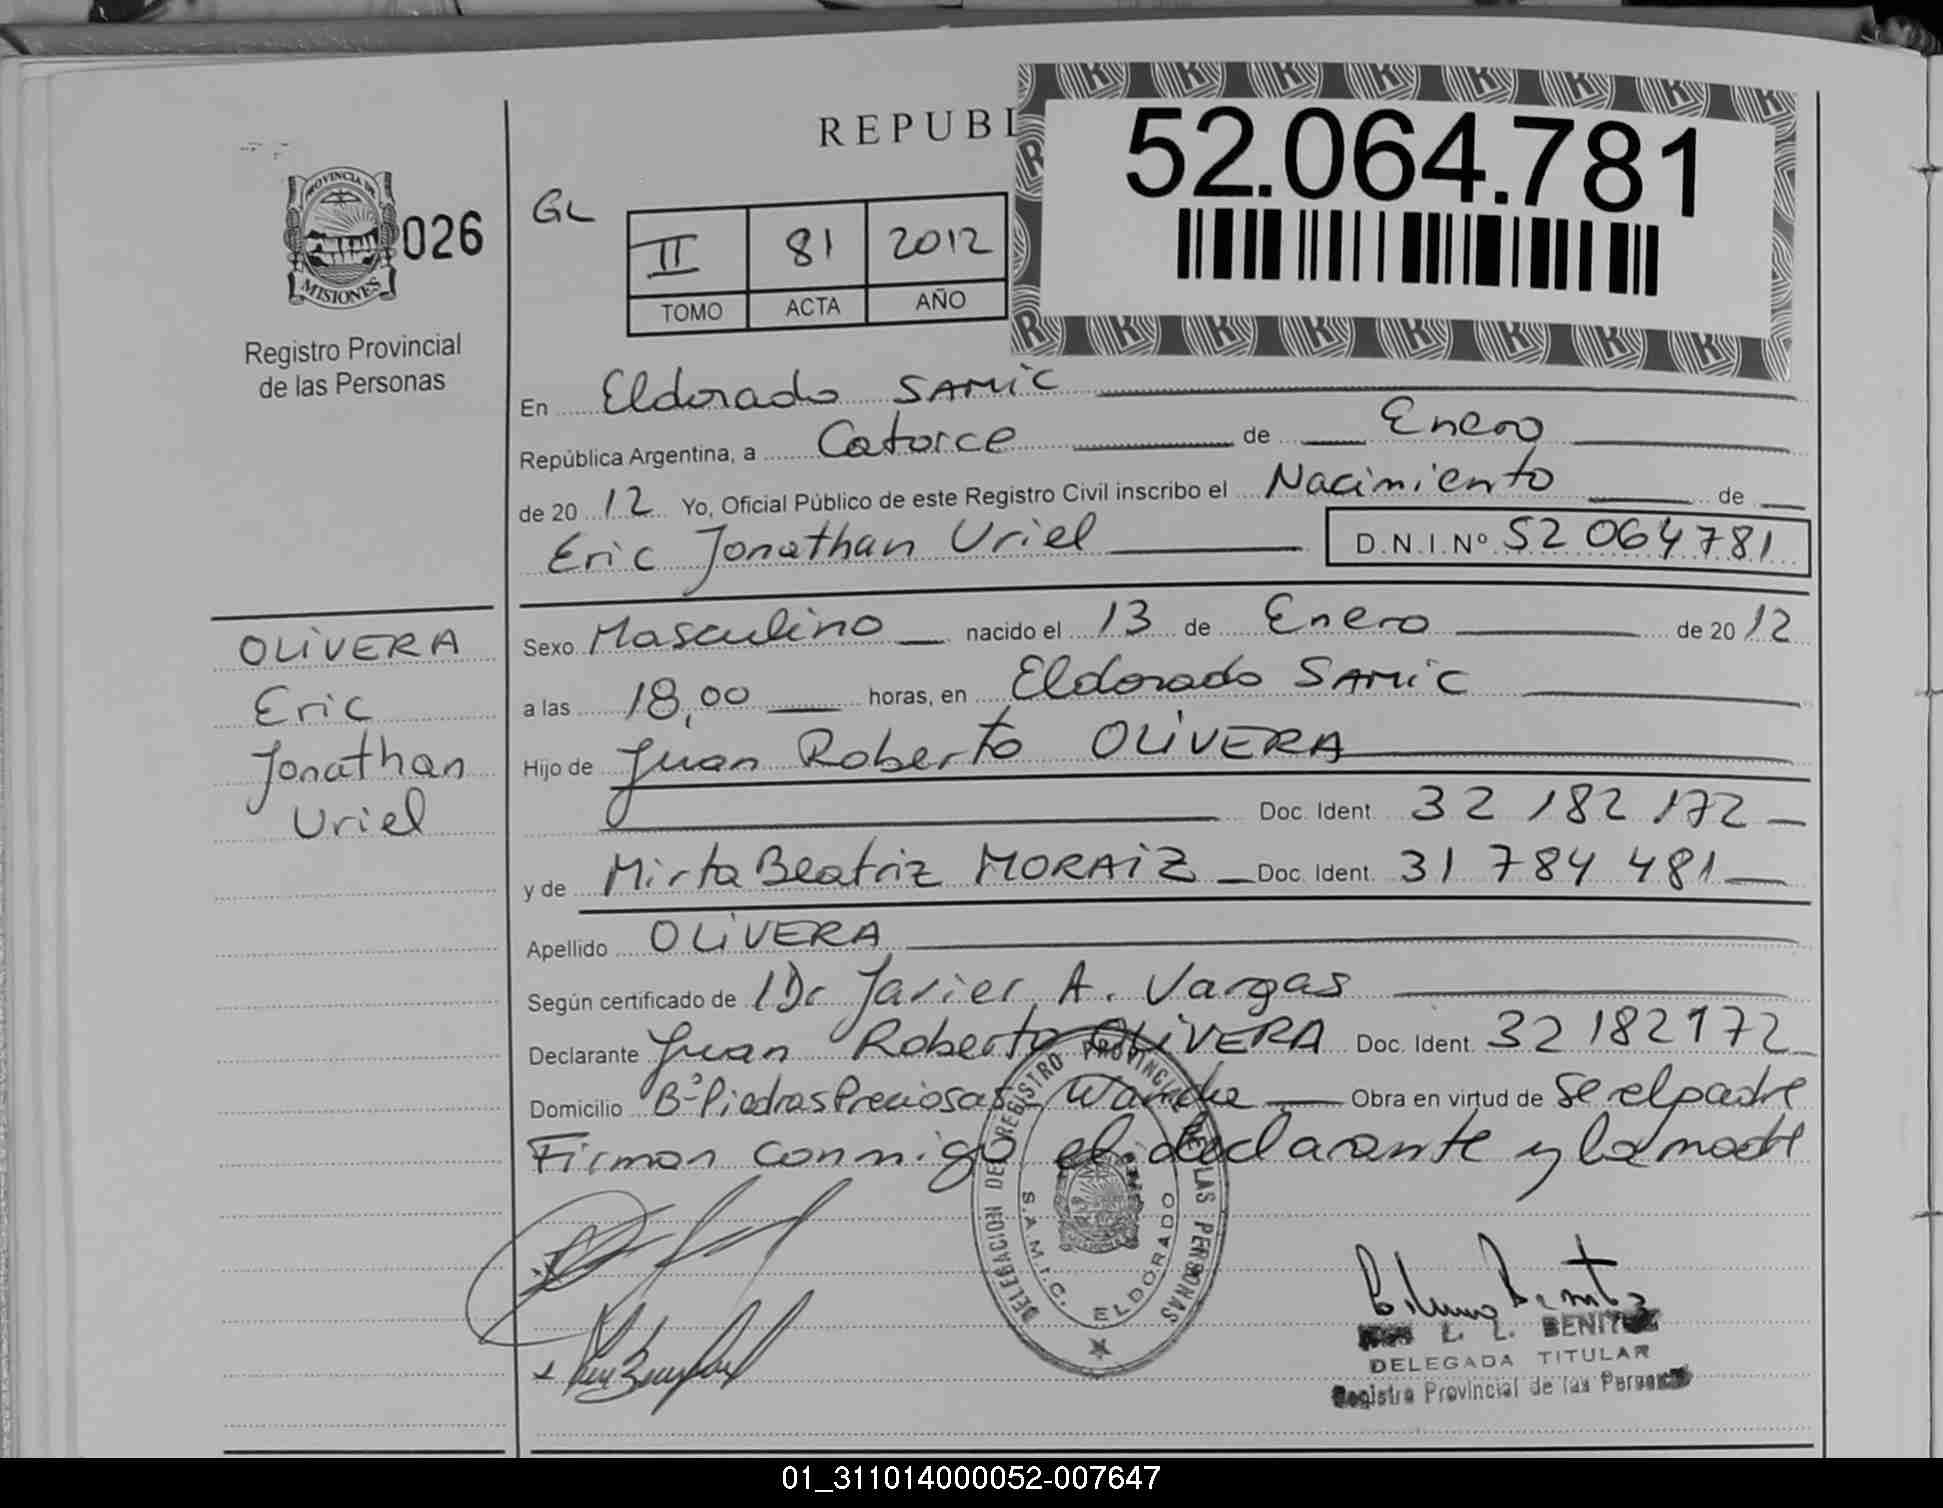 REPUBL
52.064.781
PROVINCIA DE
MISIONES
026
GL
II 81 2012
TOMO ACTA AÑO
Registro Provincial
de las Personas
En Eldorado SAMiC
República Argentina, a Catorce de Enero
de 2012 Yo, Oficial Público de este Registro Civil inscribo el Nacimiento de
Eric Jonathan Uriel D.N.I.Nº 52 064781
OLiVERA
Eric
Jonathan
Uriel
Sexo Masculino nacido el 13 de Enero de 2012
a las 18,00 horas, en Eldorado SAMiC
Hijo de Juan Roberto OLiVERA
Doc. Ident. 32 182 172
y de Mirta Beatriz MORAiZ Doc. Ident. 31 784 481
Apellido OLiVERA
Según certificado de Dr Javier A. Vargas
Declarante Juan Roberto OLiVERA Doc. Ident. 32 182172
Domicilio Bº Piedras Preciosas Wanda Obra en virtud de Se el padre
Firman conmigo el declarante y la madre
DELEGACION DE REGISTRO PROVINCIAL DE LAS PERSONAS
S.A.M.I.C. ELDORADO
L. L. BENITEZ
DELEGADA TITULAR
Registro Provincial de las Personas
01_311014000052-007647